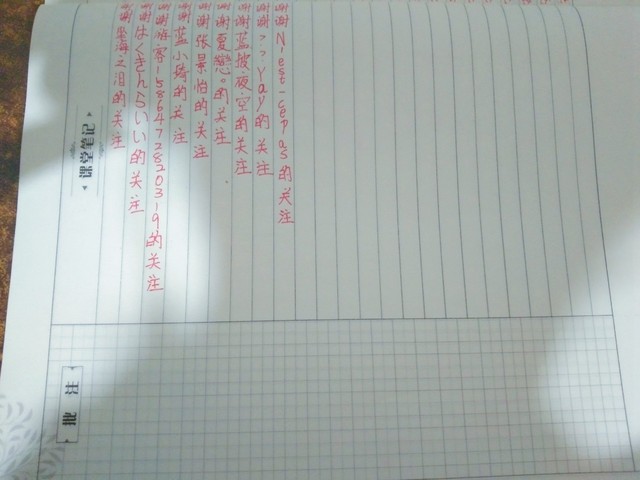 谢谢N-ese-cepas的关注
谢谢>>yay的关注
谢谢蓝披·夜·空的关注
谢谢夏戀。的关注
谢谢张景怡的关注
谢谢蓝小琦的关注
谢谢游客-1586472820319的关注
谢谢はくきんらいい的关注
谢谢之泪的关注
课堂笔记
批 注